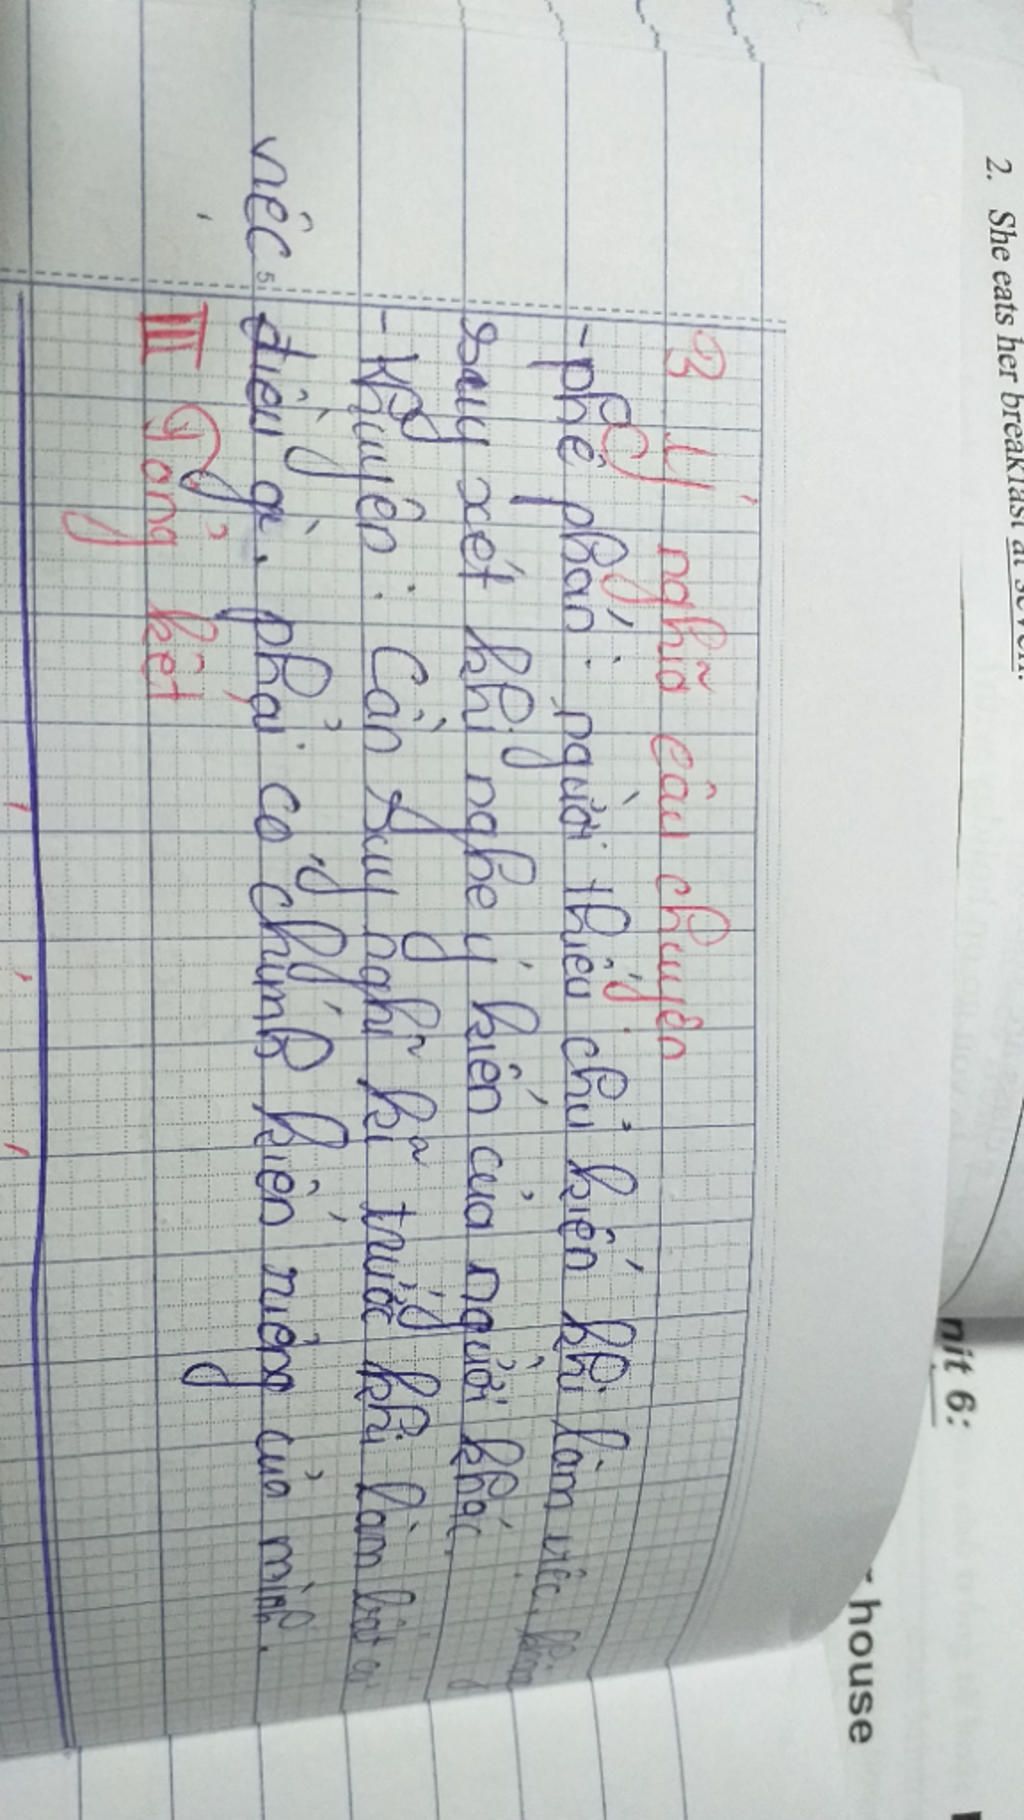 2. She eats her breakfast at seven.
nit 6:
house
3 Ý nghĩa câu chuyện
- phê phán: người thiếu chủ kiến khi làm việc, không
suy xét khi nghe ý kiến của người khác.
- Khuyên: Cần suy nghĩ kĩ trước khi làm bất cứ
việc
điều gì, phải có chính kiến riêng của mình.
III Tổng kết